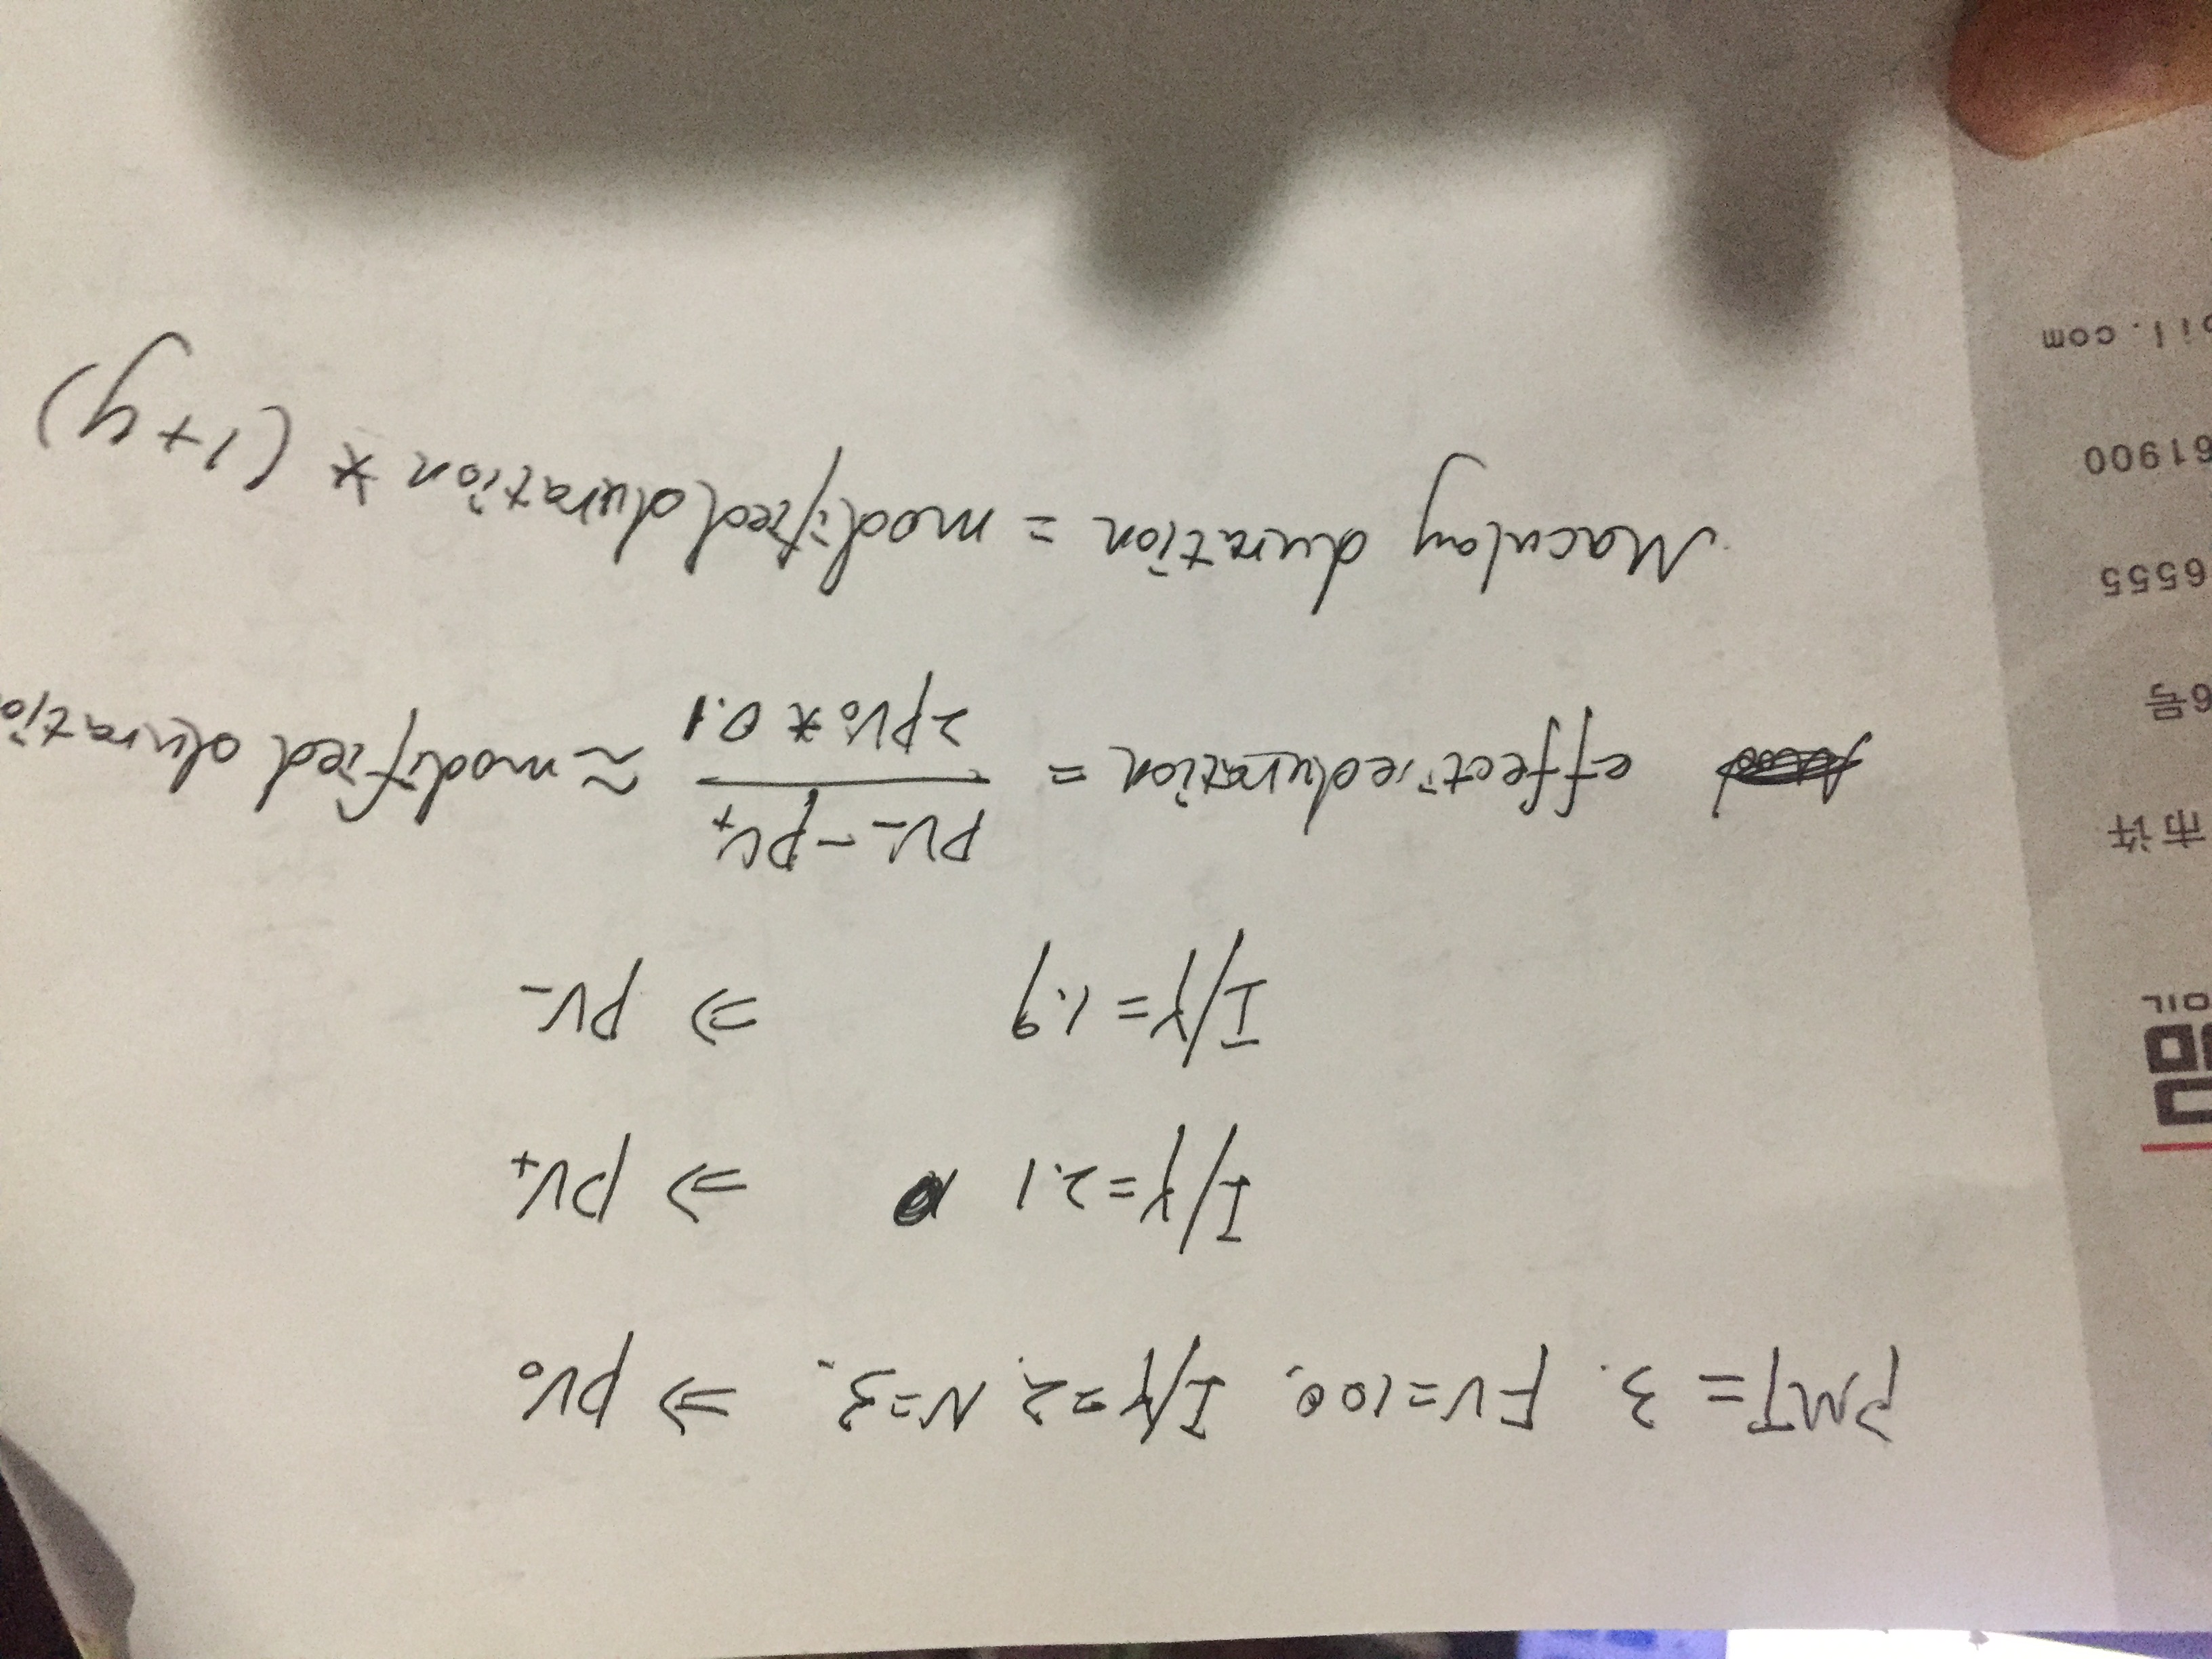 PMT = 3. FV=100. I/Y=2. N=3. ⇒ PV₀
I/Y=2.1 ⇒ PV₊
I/Y=1.9 ⇒ PV₋
effectiveduration = PV₋ - PV₊ / 2PV₀ * 0.1 ≈ modified duratio
Maculay duration = modified duration * (1+y)
OIL
市许
6号
6555
61900
il.com